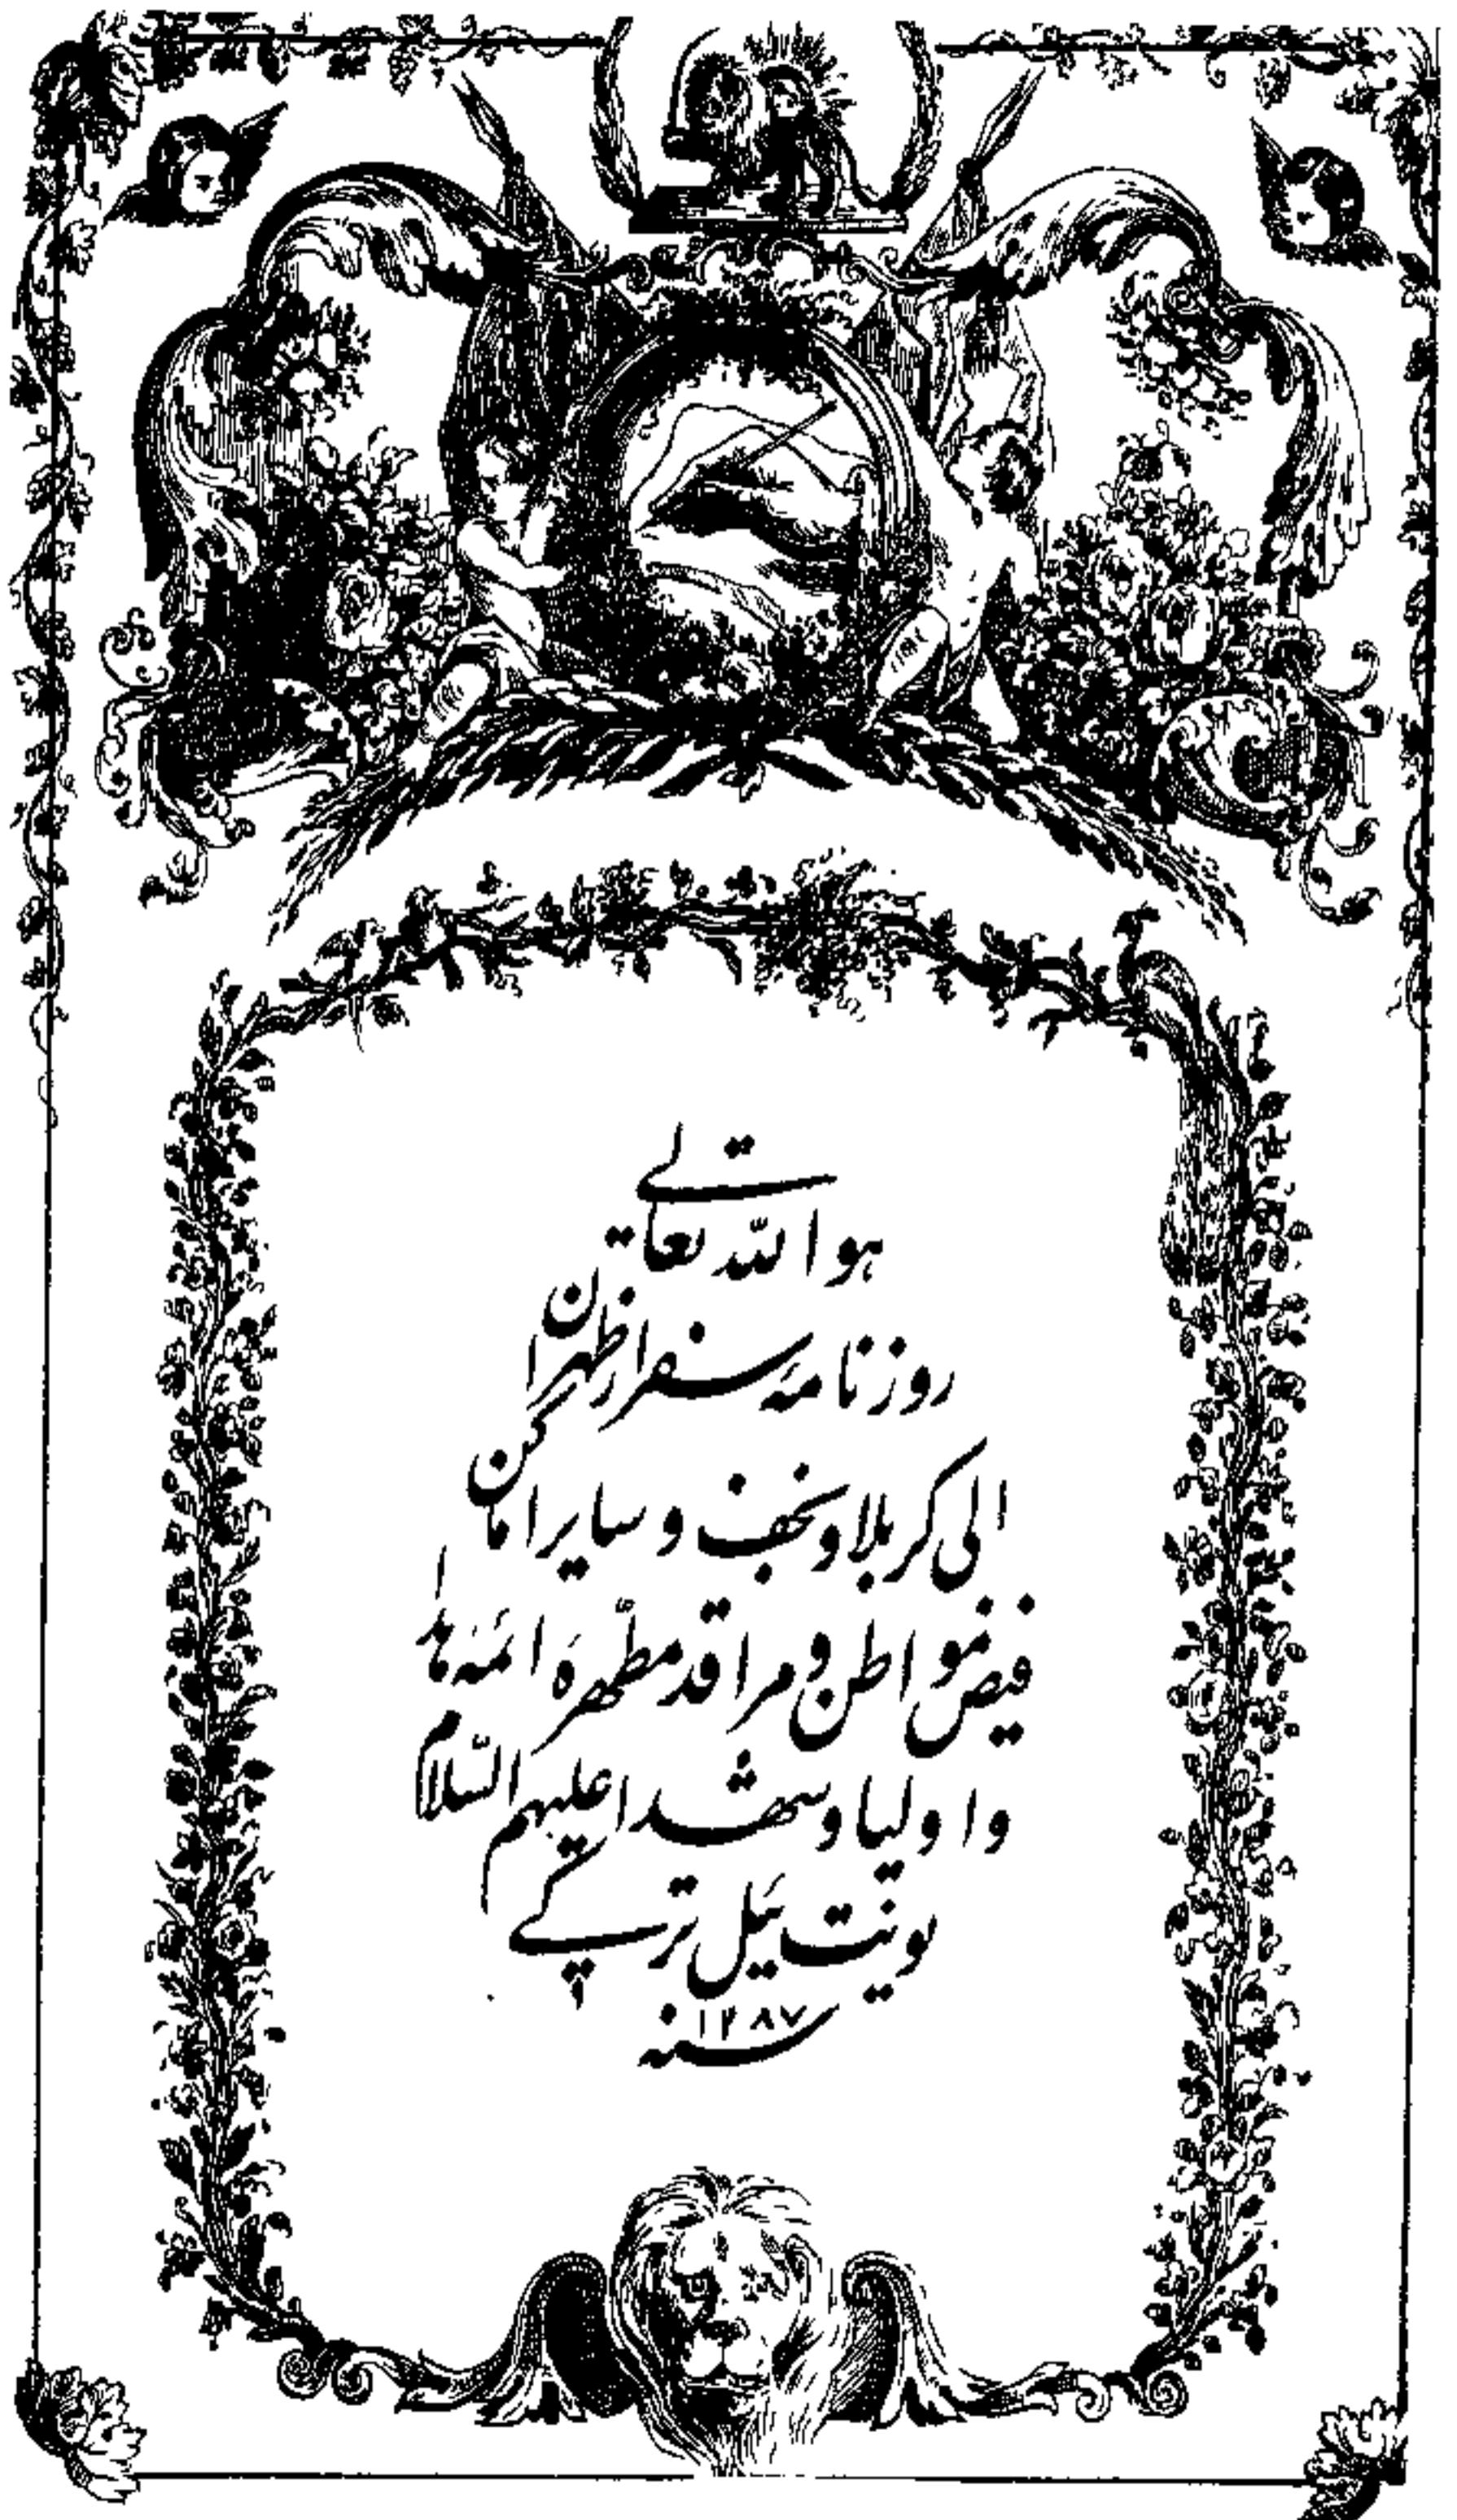 هو الله تعالی
روزنامهٔ سفر از طهران
الی کربلا و نجف و سایر اماکن
فیض مواطن و مراقد مطهرهٔ ائمه هدا
و اولیا و شهدا علیهم السلام
یونیت ئیل ترکی
سنه ۱۲۸۷